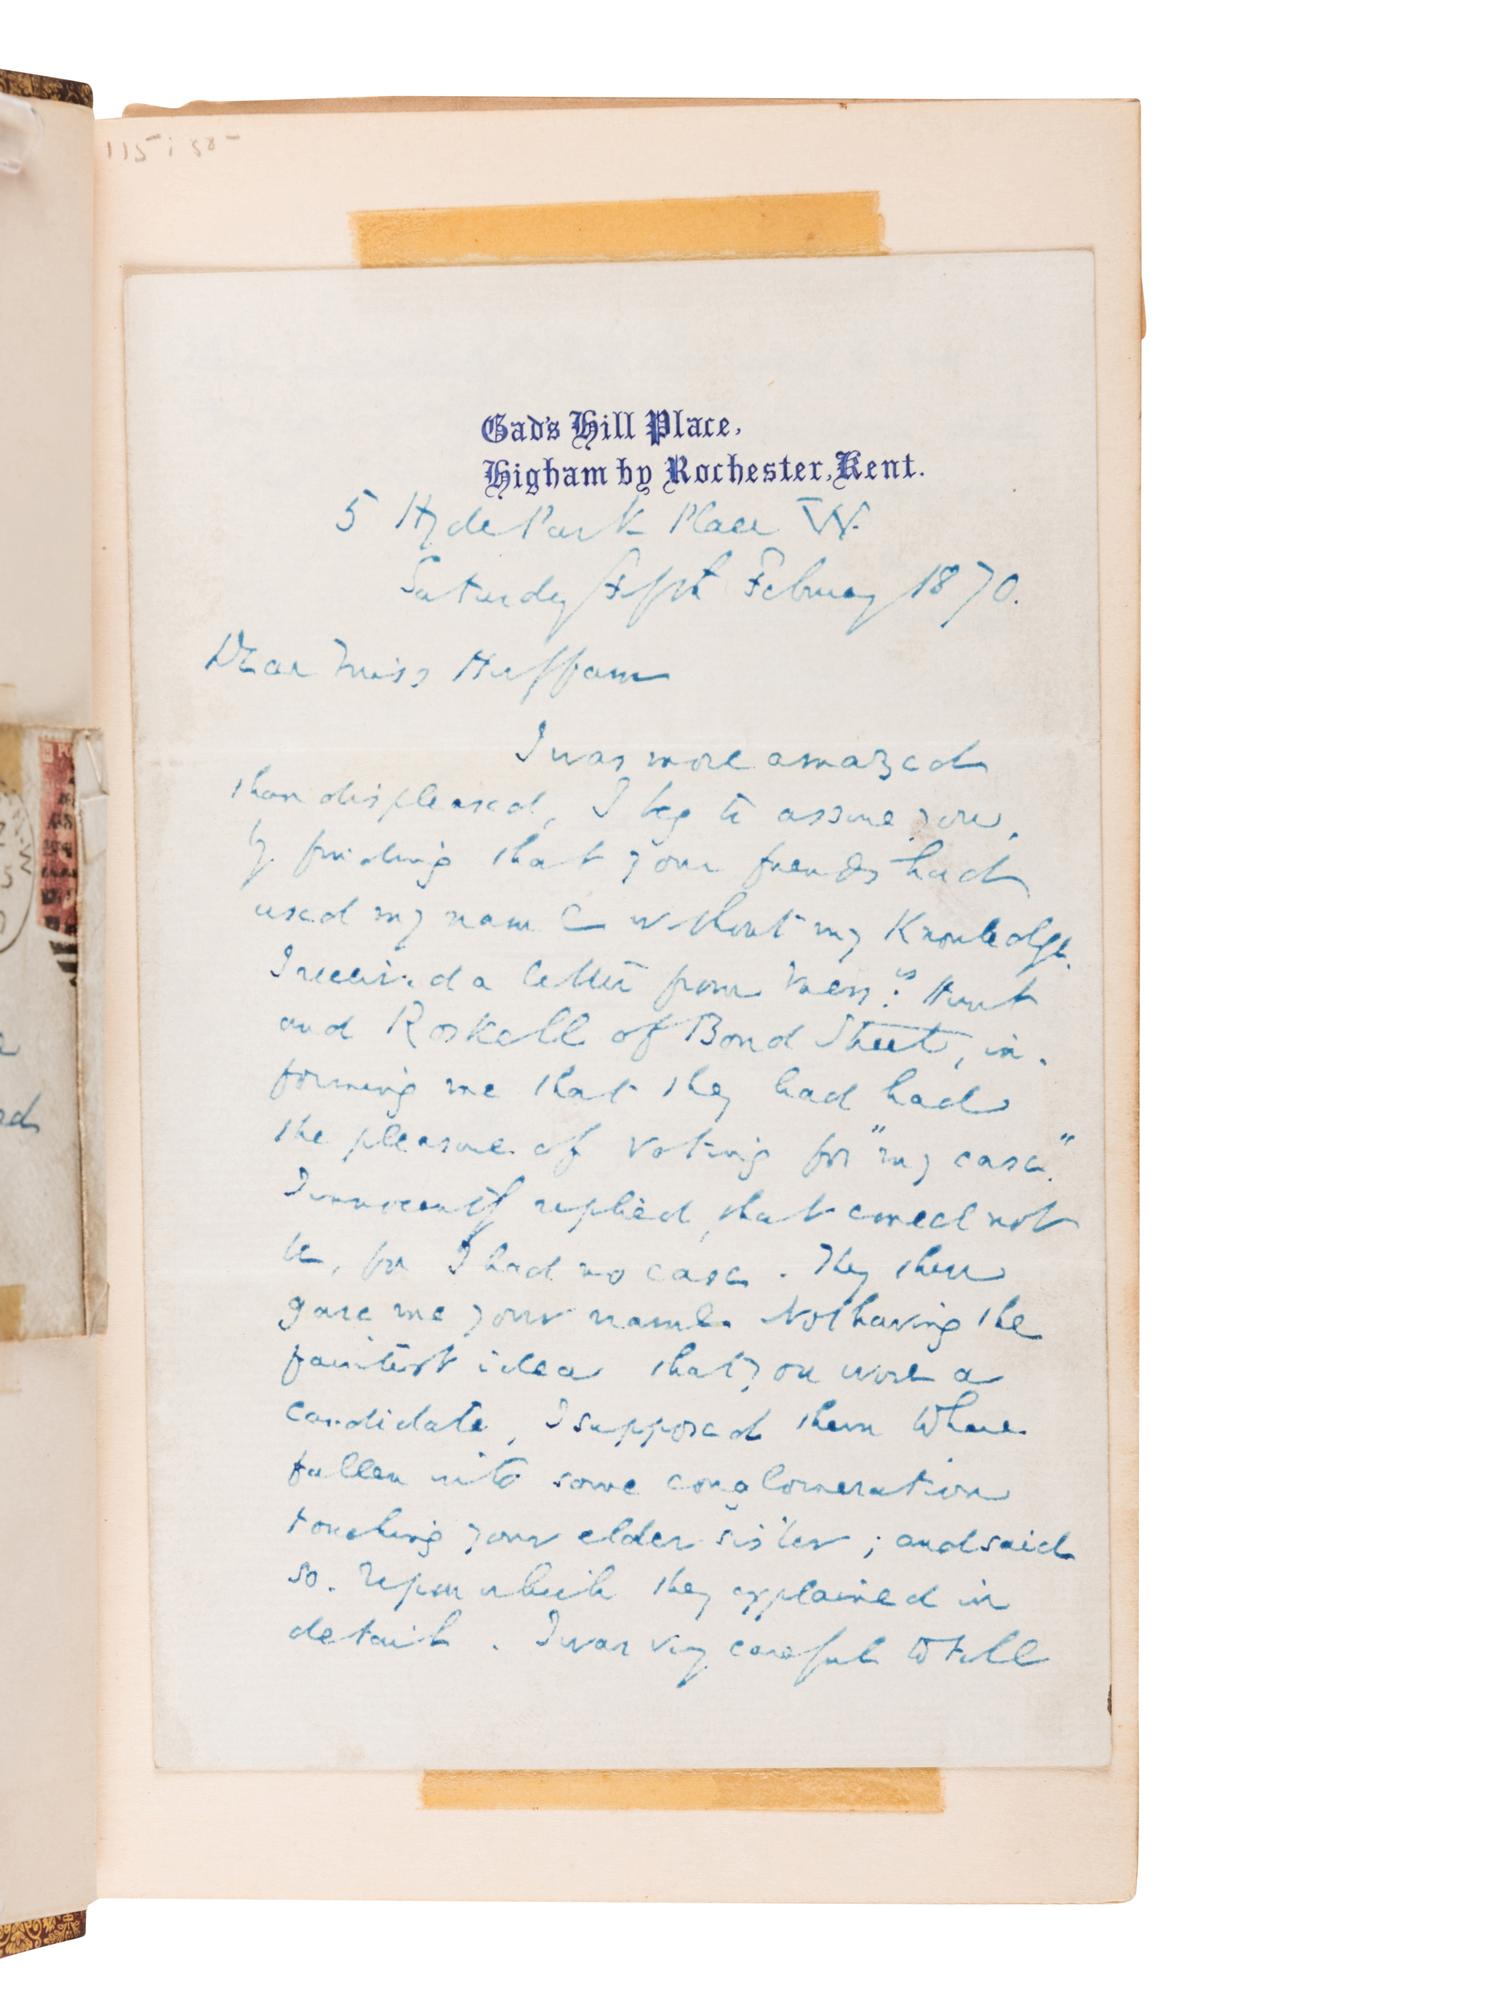 115
Gad's Hill Place,
Higham by Rochester, Kent.
5 Hyde Park Place W.
Saturday Fifth February 1870.
Dear Miss Huffam
I was more amazed
than displeased, I beg to assure you,
by finding that your friends had
used my name without my Knowledge.
I received a letter from Mess:rs Hunt
and Roskell of Bond Street, in-
forming me that they had had
the pleasure of voting for "my case."
I innocently replied, that coued not
be, for I had no case. They then
gave me your name. Not having the
faintest idea that you were a
candidate, I supposed them to have
fallen into some conglomeration
touching your elder sister; and said
so. Upon which they explained in
detail. I was very careful to tell
ed